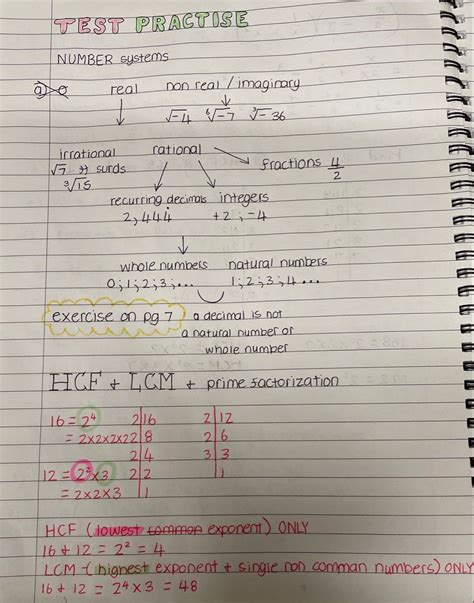 TEST PRACTISE
NUMBER systems
real non real / imaginary
√-4 ⁶√-7 ³√-36
irrational rational fractions 4/2
√7 → surds
³√15
recurring decimals integers
2,444 +2 ; -4
whole numbers natural numbers
0;1;2;3;... 1;2;3;4...
exercise on pg 7 a decimal is not
a natural number or
whole number
HCF + LCM + prime factorization
16 = 2⁴ 2|16 2|12
= 2x2x2x2 2|8 2|6
2|4 3|3
12 = 2² x 3 2|2 |1
= 2x2x3 |1
HCF (lowest common exponent) ONLY
16 + 12 = 2² = 4
LCM (highest exponent + single non comman numbers) ONLY
16 + 12 = 2⁴ x 3 = 48